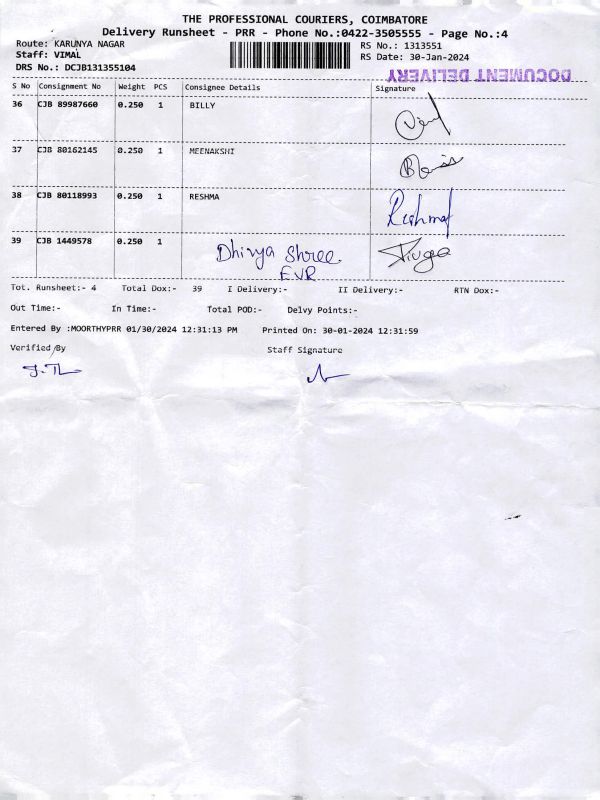 THE PROFESSIONAL COURIERS, COIMBATORE
Delivery Runsheet - PRR - Phone No.:0422-3505555 - Page No.:4
Route: KARUNYA NAGAR
Staff: VIMAL
DRS No.: DCJB131355104
RS No.: 1313551
RS Date: 30-Jan-2024
DOCUMENT DELIVERY
S No Consignment No Weight PCS Consignee Details Signature
36 CJB 89987660 0.250 1 BILLY
37 CJB 80162145 0.250 1 MEENAKSHI
38 CJB 80118993 0.250 1 RESHMA Reshma
39 CJB 1449578 0.250 1 Dhivya Shree.
EVR
Tot. Runsheet:- 4 Total Dox:- 39 I Delivery:- II Delivery:- RTN Dox:-
Out Time:- In Time:- Total POD:- Delvy Points:-
Entered By :MOORTHYPRR 01/30/2024 12:31:13 PM Printed On: 30-01-2024 12:31:59
Verified By Staff Signature